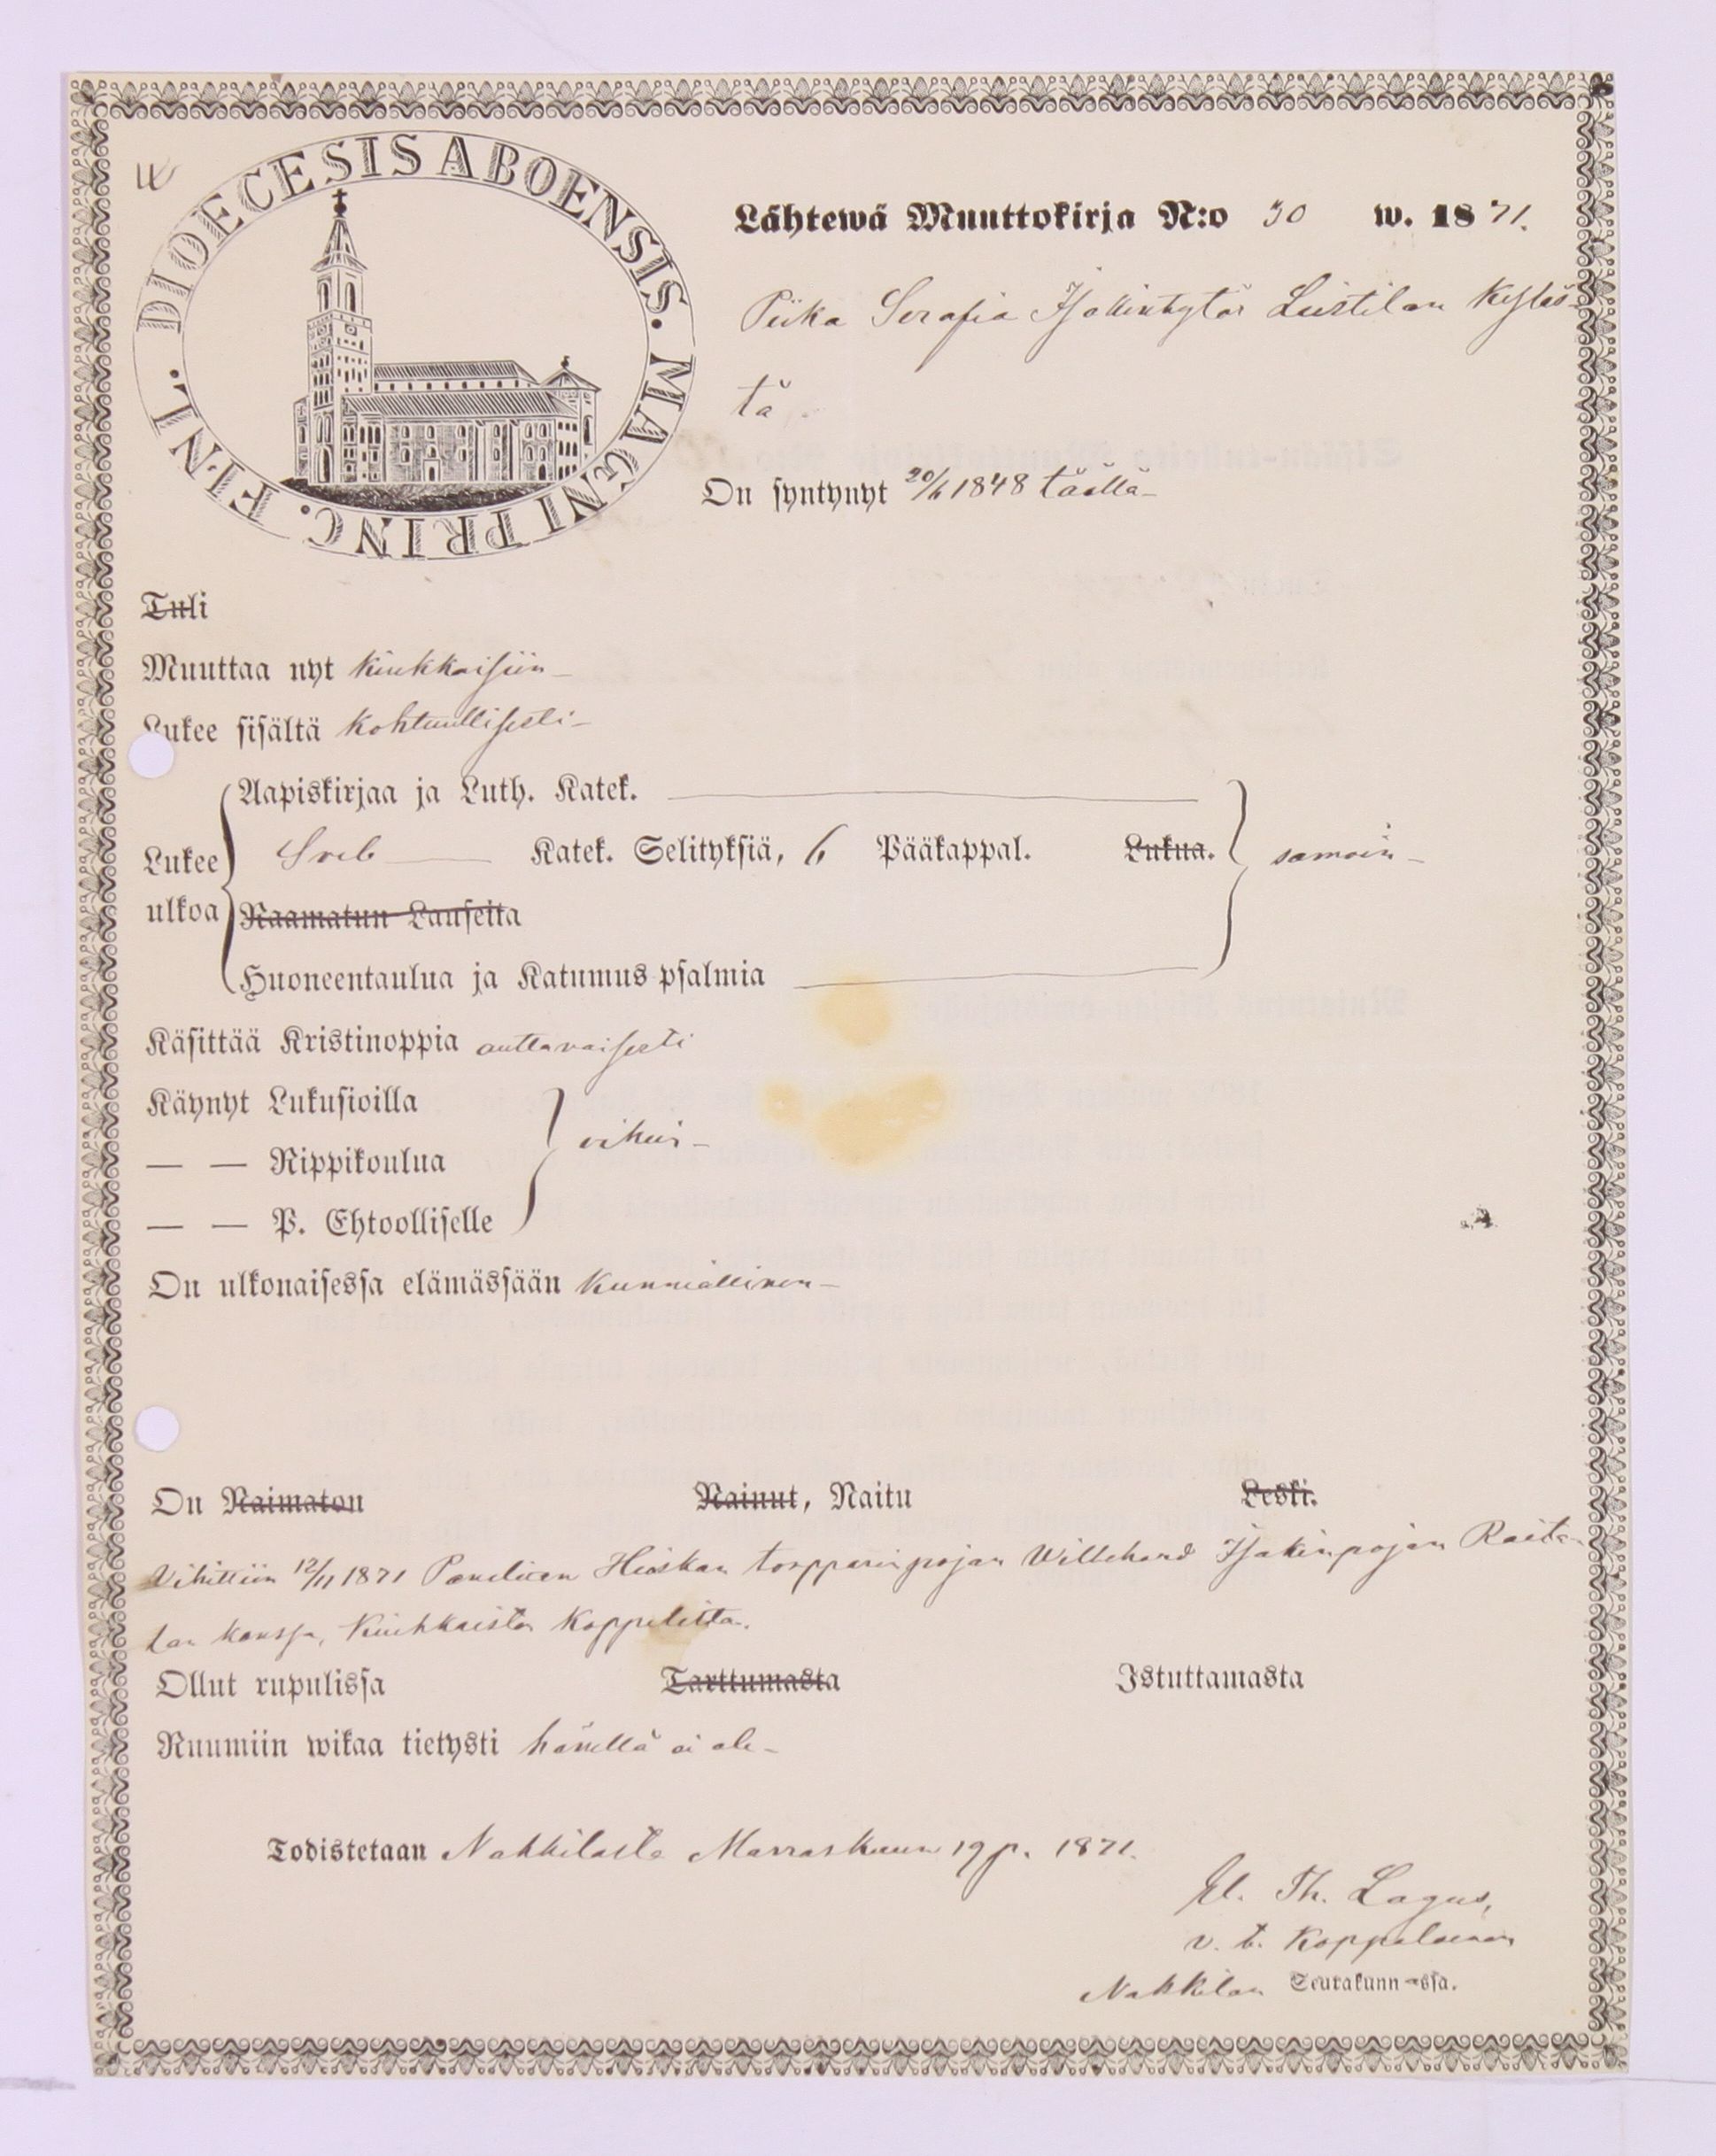 DIOECESIS ABOENSIS. MAGNI PRINC. FINL.
Lähtewä Muuttokirja N:o 30 w. 1871.
Piika Serafia Isakintytär Leistilan kyläs-
tä
On syntynyt 20/6 1848 täällä
Tuli
Muuttaa nyt Kiukkaisiin
Lukee sisältä kohtuullisesti
Aapiskirjaa ja Luth. Katek.
Lukee ulkoa Sveb Katek. Selityksiä, 6 Pääkappal. Lukua. samoin
Raamatun Lauseita
Huoneentaulua ja Katumus-psalmia
Käsittää Kristinoppia auttavaisesti
Käynyt Lukusioilla
— — Rippikoulua oikein
— — P. Ehtoolliselle
On ulkonaisessa elämässään kunniallinen
On Naimaton Nainut, Naitu Leski.
Vihittiin 12/11 1871 Panelian Heiskan torpparinpojan Willehard Isakinpojan Raita-
lan kanssa, Kiukkaisten Kappelista.
Ollut rupulissa Tarttumasta Istuttamasta
Ruumiin wikaa tietysti hänellä ei ole
Todistetaan Nakkilasta Marraskuun 19 p. 1871.
Th. Lagus,
v. t. Kappalainen
Nakkilan Seurakunn-ssa.